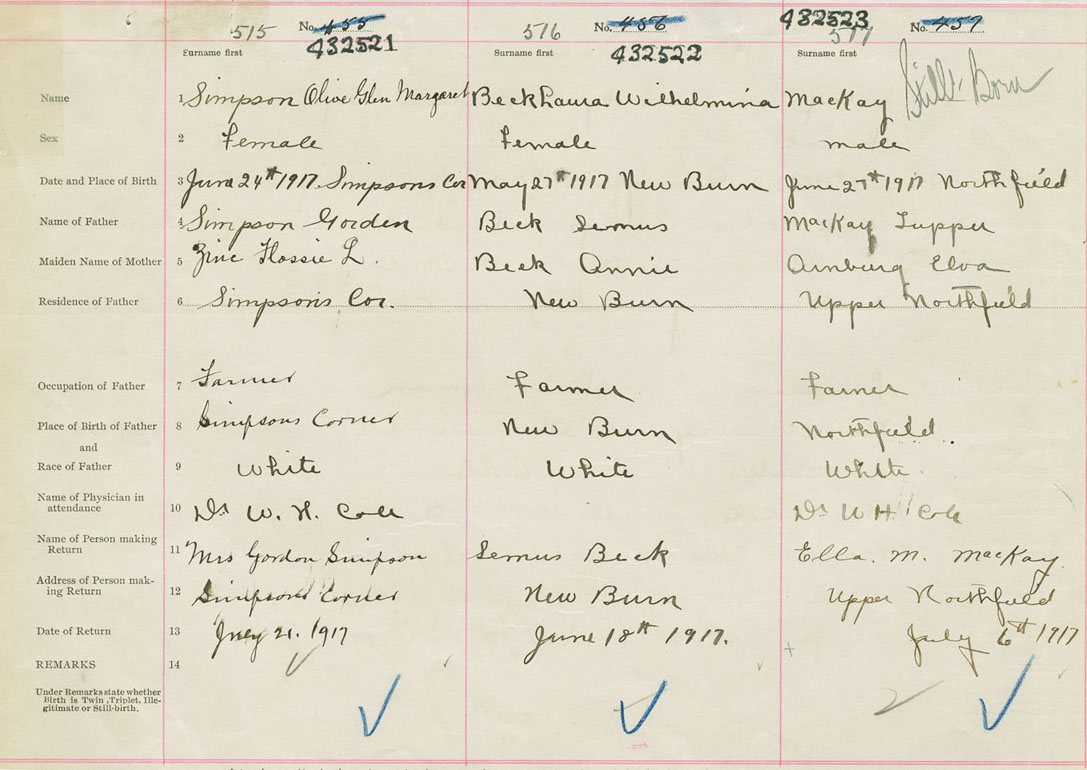 515 No. 455 576 No. 456 432523 577 No. 457
432521 432522
Surname first Surname first Surname first
Still Born
Name 1 Simpson Olive Glen Margaret Beck Laura Wilhelmina MacKay
Sex 2 Female Female male
Date and Place of Birth 3 June 24th 1917 Simpsons Cor May 27th 1917 New Burn June 27th 1917 Northfield
Name of Father 4 Simpson Gorden Beck Semus MacKay Tupper
Maiden Name of Mother 5 Zinc Flossie L. Beck Annie Arnburg Elva
Residence of Father 6 Simpson's Cor. New Burn Upper Northfield
Occupation of Father 7 Farmer Farmer Farmer
Place of Birth of Father 8 Simpsons Corner New Burn Northfield.
and
Race of Father 9 White White White
Name of Physician in
attendance 10 Dr W. H. Cole Dr W H Cole
Name of Person making
Return 11 Mrs Gordon Simpson Semus Beck Ella. M. MacKay.
Address of Person mak-
ing Return 12 Simpsons Corner New Burn Upper Northfield
Date of Return 13 July 21. 1917 June 18th 1917. July 6th 1917
REMARKS 14
Under Remarks state whether
Birth is Twin, Triplet, Ille-
gitimate or Still-birth.